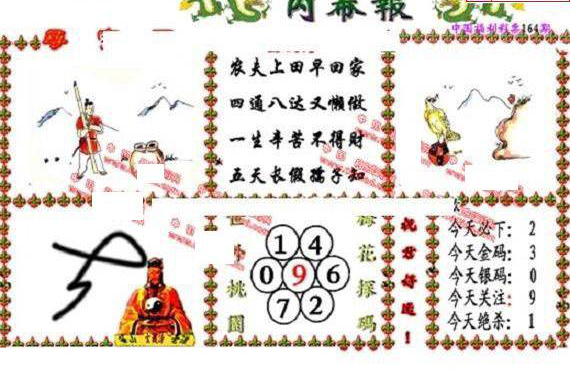 内幕報
中国福利彩票164期
农夫上田早回家
四通八达又懒做
一生辛苦不得财
五天长假孺子知
世外桃園
1 4
0 9 6
7 2
梅花探码
祝君好运!
今天必下: 2
今天金码: 3
今天银码: 0
今天关注: 9
今天绝杀: 1